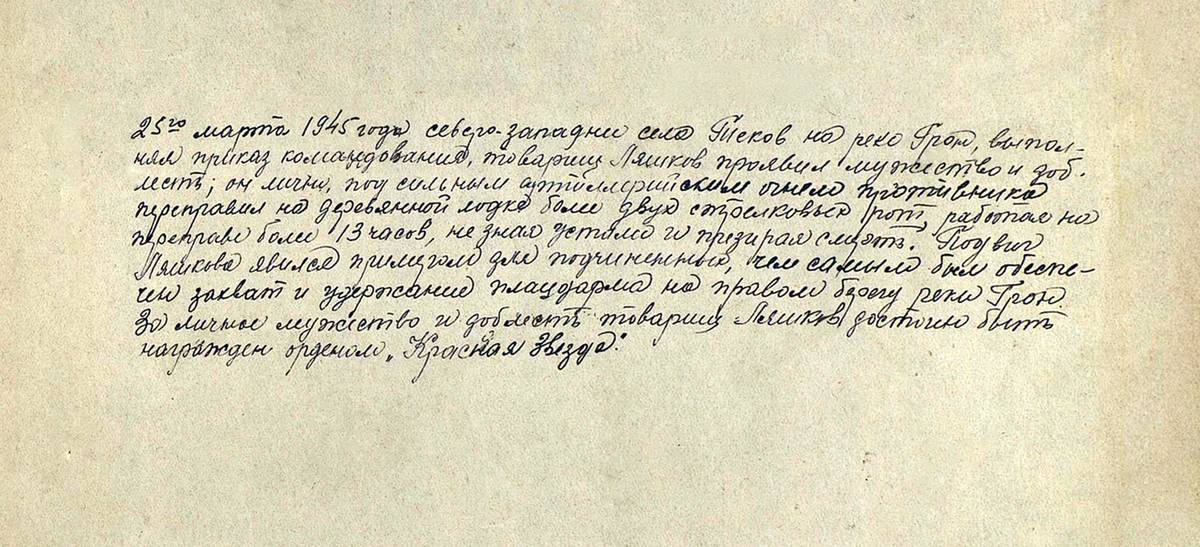 25го марта 1945 года северо-западнее села Тсеков на реке Грон, выпол-
няя приказ командования, товарищ Ляшков проявил мужество и доб-
лесть; он лично, под сильным артиллерийским огнем противника
переправил на деревянной лодке более двух стрелковых рот, работая на
переправе более 13 часов, не зная устали и презирая смерть. Подвиг
Ляшкова явился примером для подчиненных, чем самым был обеспе-
чен захват и удержание плацдарма на правом берегу реки Грон.
За личное мужество и доблесть товарищ Ляшков достоин быть
награжден орденом „Красная Звезда".